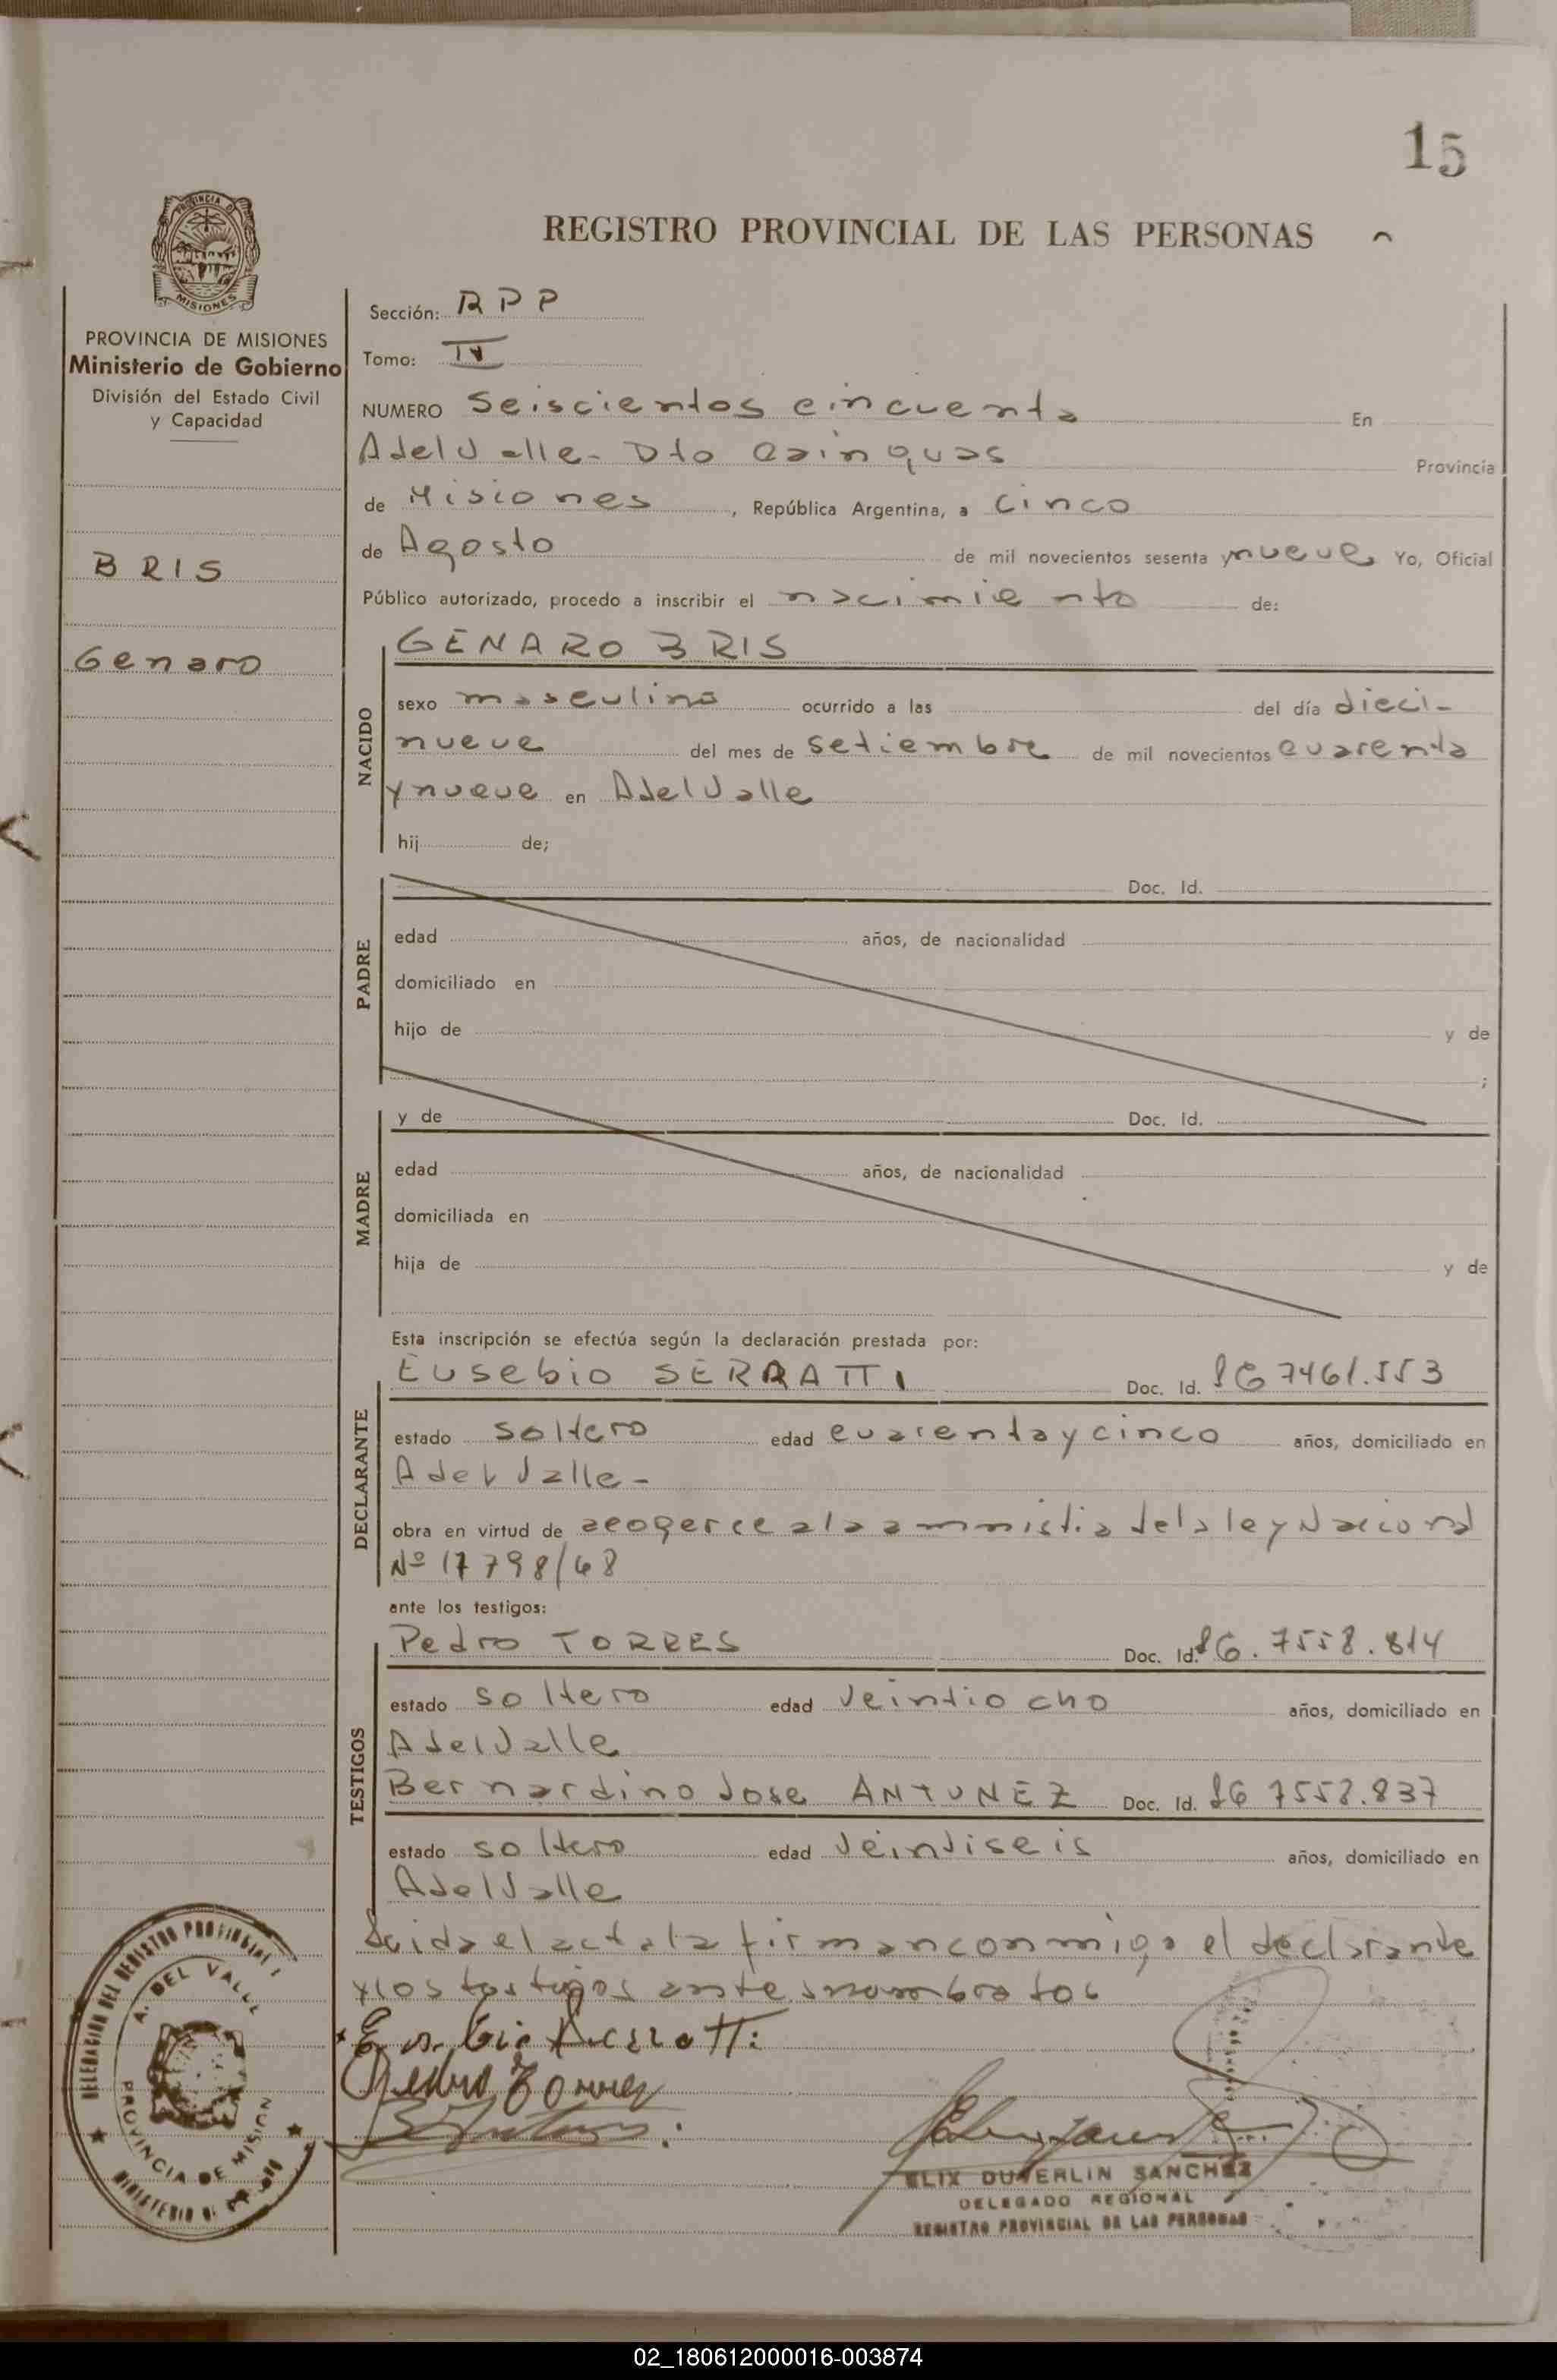 15
REGISTRO PROVINCIAL DE LAS PERSONAS
PROVINCIA DE MISIONES
Ministerio de Gobierno
División del Estado Civil
y Capacidad
BRIS
Genaro
Sección: RPP
Tomo: IV
NUMERO Seiscientos cincuenta En
A del Valle - Dto Cainguas Provincia
de Misiones, República Argentina, a cinco
de Agosto de mil novecientos sesenta y nueve Yo, Oficial
Público autorizado, procedo a inscribir el nacimiento de:
NACIDO
GENARO BRIS
sexo masculino ocurrido a las del día dieci-
nueve del mes de setiembre de mil novecientos cuarenta
y nueve en A del Valle
hij de;
PADRE
Doc. Id.
edad años, de nacionalidad
domiciliado en
hijo de y de
;
MADRE
y de Doc. Id.
edad años, de nacionalidad
domiciliada en
hija de y de
Esta inscripción se efectúa según la declaración prestada por:
DECLARANTE
Eusebio SERRATTI Doc. Id. 7461.553
estado soltero edad cuarenta y cinco años, domiciliado en
A del Valle -
obra en virtud de acogerce a la amnistia de la ley Nacional
Nº 17798/68
ante los testigos:
TESTIGOS
Pedro TORRES Doc. Id. 7558.814
estado soltero edad Veintiocho años, domiciliado en
A del Valle
Bernardino Jose ANTUNEZ Doc. Id. 7558.837
estado soltero edad Veintiseis años, domiciliado en
A del Valle
Leida el acta la firman conmigo el declarante
y los testigos antes nombrados
Eusebio Serratti
Pedro Torres
ELIX DUVERLIN SANCHEZ
DELEGADO REGIONAL
REGISTRO PROVINCIAL DE LAS PERSONAS
DELEGACION DEL REGISTRO PROVINCIAL
A. DEL VALLE
PROVINCIA DE MISIONES
MINISTERIO DE
02_180612000016-003874